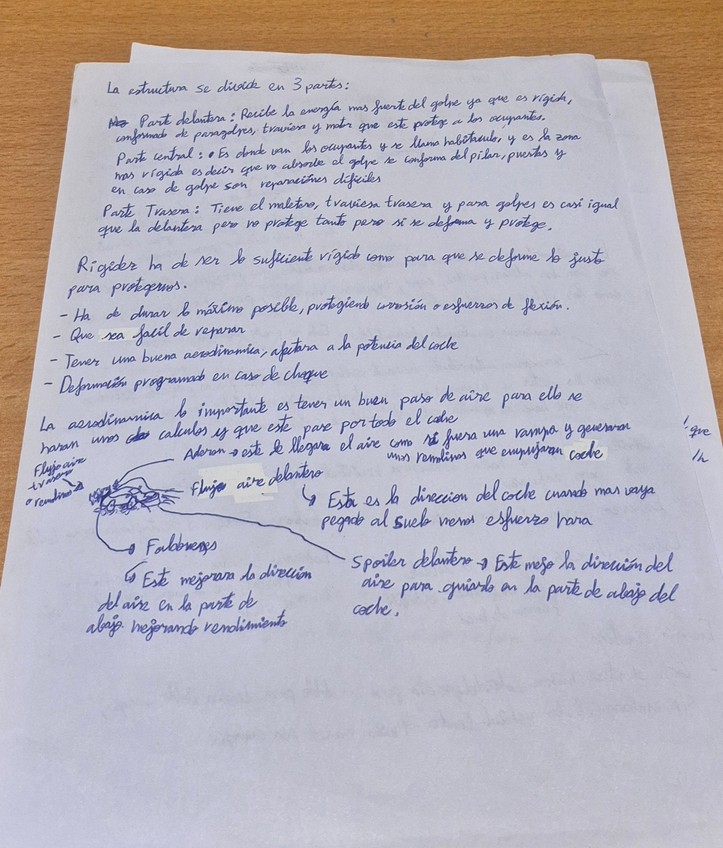 La estructura se divide en 3 partes:
Parte delantera: Recibe la energía mas fuerte del golpe ya que es rígida,
conformado de paragolpes, traviesa y motor que este protege a los ocupantes.
Parte central: • Es donde van los ocupantes y se llama habitaculo, y es la zona
mas rígida es decir que no absorbe el golpe se conforma del pilar, puertas y
en caso de golpe son reparaciónes difíciles
Parte Trasera: Tiene el maletero, traviesa trasera y para golpes es casi igual
que la delantera pero no protege tanto pero si se deforma y protege.
Rigidez ha de ser lo suficiente rígido como para que se deforme lo justo
para protegernos.
- Ha de durar lo máximo posible, protegiendo corrosión o esfuerzos de flexión.
- Que sea facil de reparar
- Tener una buena aerodinamica, afectara a la potencia del coche
- Deformación programado en caso de choque
La aerodinamica lo importante es tener un buen paso de aire para ello se
haran unos calculos y que este pase por todo el coche
Flujo aire
trasero
o remolinos
Aleron → este le llegara el aire como si fuera una rampa y generaran
unos remolinos que empujaran coche
Flujo aire delantero
↳ Esta es la direccion del coche cuando mas vaya
pegado al suelo menos esfuerzo hara
Faldones
↳ Este mejorara la dirección
del aire en la parte de
abajo mejorando rendimiento
Spoiler delantero → Este mejo la dirección del
aire para guiarlo en la parte de abajo del
coche.
que